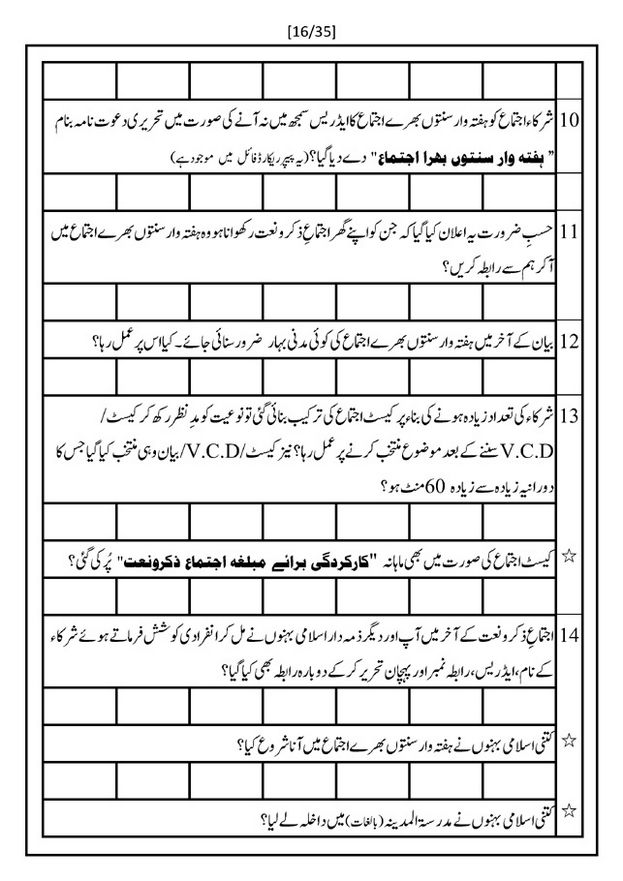 [16/35]
10 شرکاء اجتماع کو ہفتہ وار سنتوں بھرے اجتماع کا ایڈریس سمجھ میں نہ آنے کی صورت میں تحریری دعوت نامہ بنام
" ہفتہ وار سنتوں بھرا اجتماع" دے دیا گیا؟ (یہ پیپر ریکارڈ فائل میں موجود ہے)
11 حسبِ ضرورت یہ اعلان کیا گیا کہ جن کو اپنے گھر اجتماعِ ذکر و نعت رکھوانا ہو وہ ہفتہ وار سنتوں بھرے اجتماع میں
آ کر ہم سے رابطہ کریں؟
12 بیان کے آخر میں ہفتہ وار سنتوں بھرے اجتماع کی کوئی مدنی بہار ضرور سنائی جائے۔ کیا اس پر عمل رہا؟
13 شرکاء کی تعداد زیادہ ہونے کی بناء پر کیسٹ اجتماع کی ترکیب بنائی گئی تو نوعیت کو مدِ نظر رکھ کر کیسٹ/
V.C.D سننے کے بعد موضوع منتخب کرنے پر عمل رہا؟ نیز کیسٹ/V.C.D/بیان وہی منتخب کیا گیا جس کا
دورانیہ زیادہ سے زیادہ 60 منٹ ہو؟
☆ کیسٹ اجتماع کی صورت میں بھی ماہانہ "کارکردگی برائے مبلغہ اجتماع ذکرونعت" پُر کی گئی؟
14 اجتماعِ ذکر و نعت کے آخر میں آپ اور دیگر ذمہ دار اسلامی بہنوں نے مل کر انفرادی کوشش فرماتے ہوئے شرکاء
کے نام، ایڈریس، رابطہ نمبر اور پہچان تحریر کر کے دوبارہ رابطہ بھی کیا گیا؟
☆ کتنی اسلامی بہنوں نے ہفتہ وار سنتوں بھرے اجتماع میں آنا شروع کیا؟
☆ کتنی اسلامی بہنوں نے مدرسۃ المدینہ (بالغات) میں داخلہ لے لیا؟